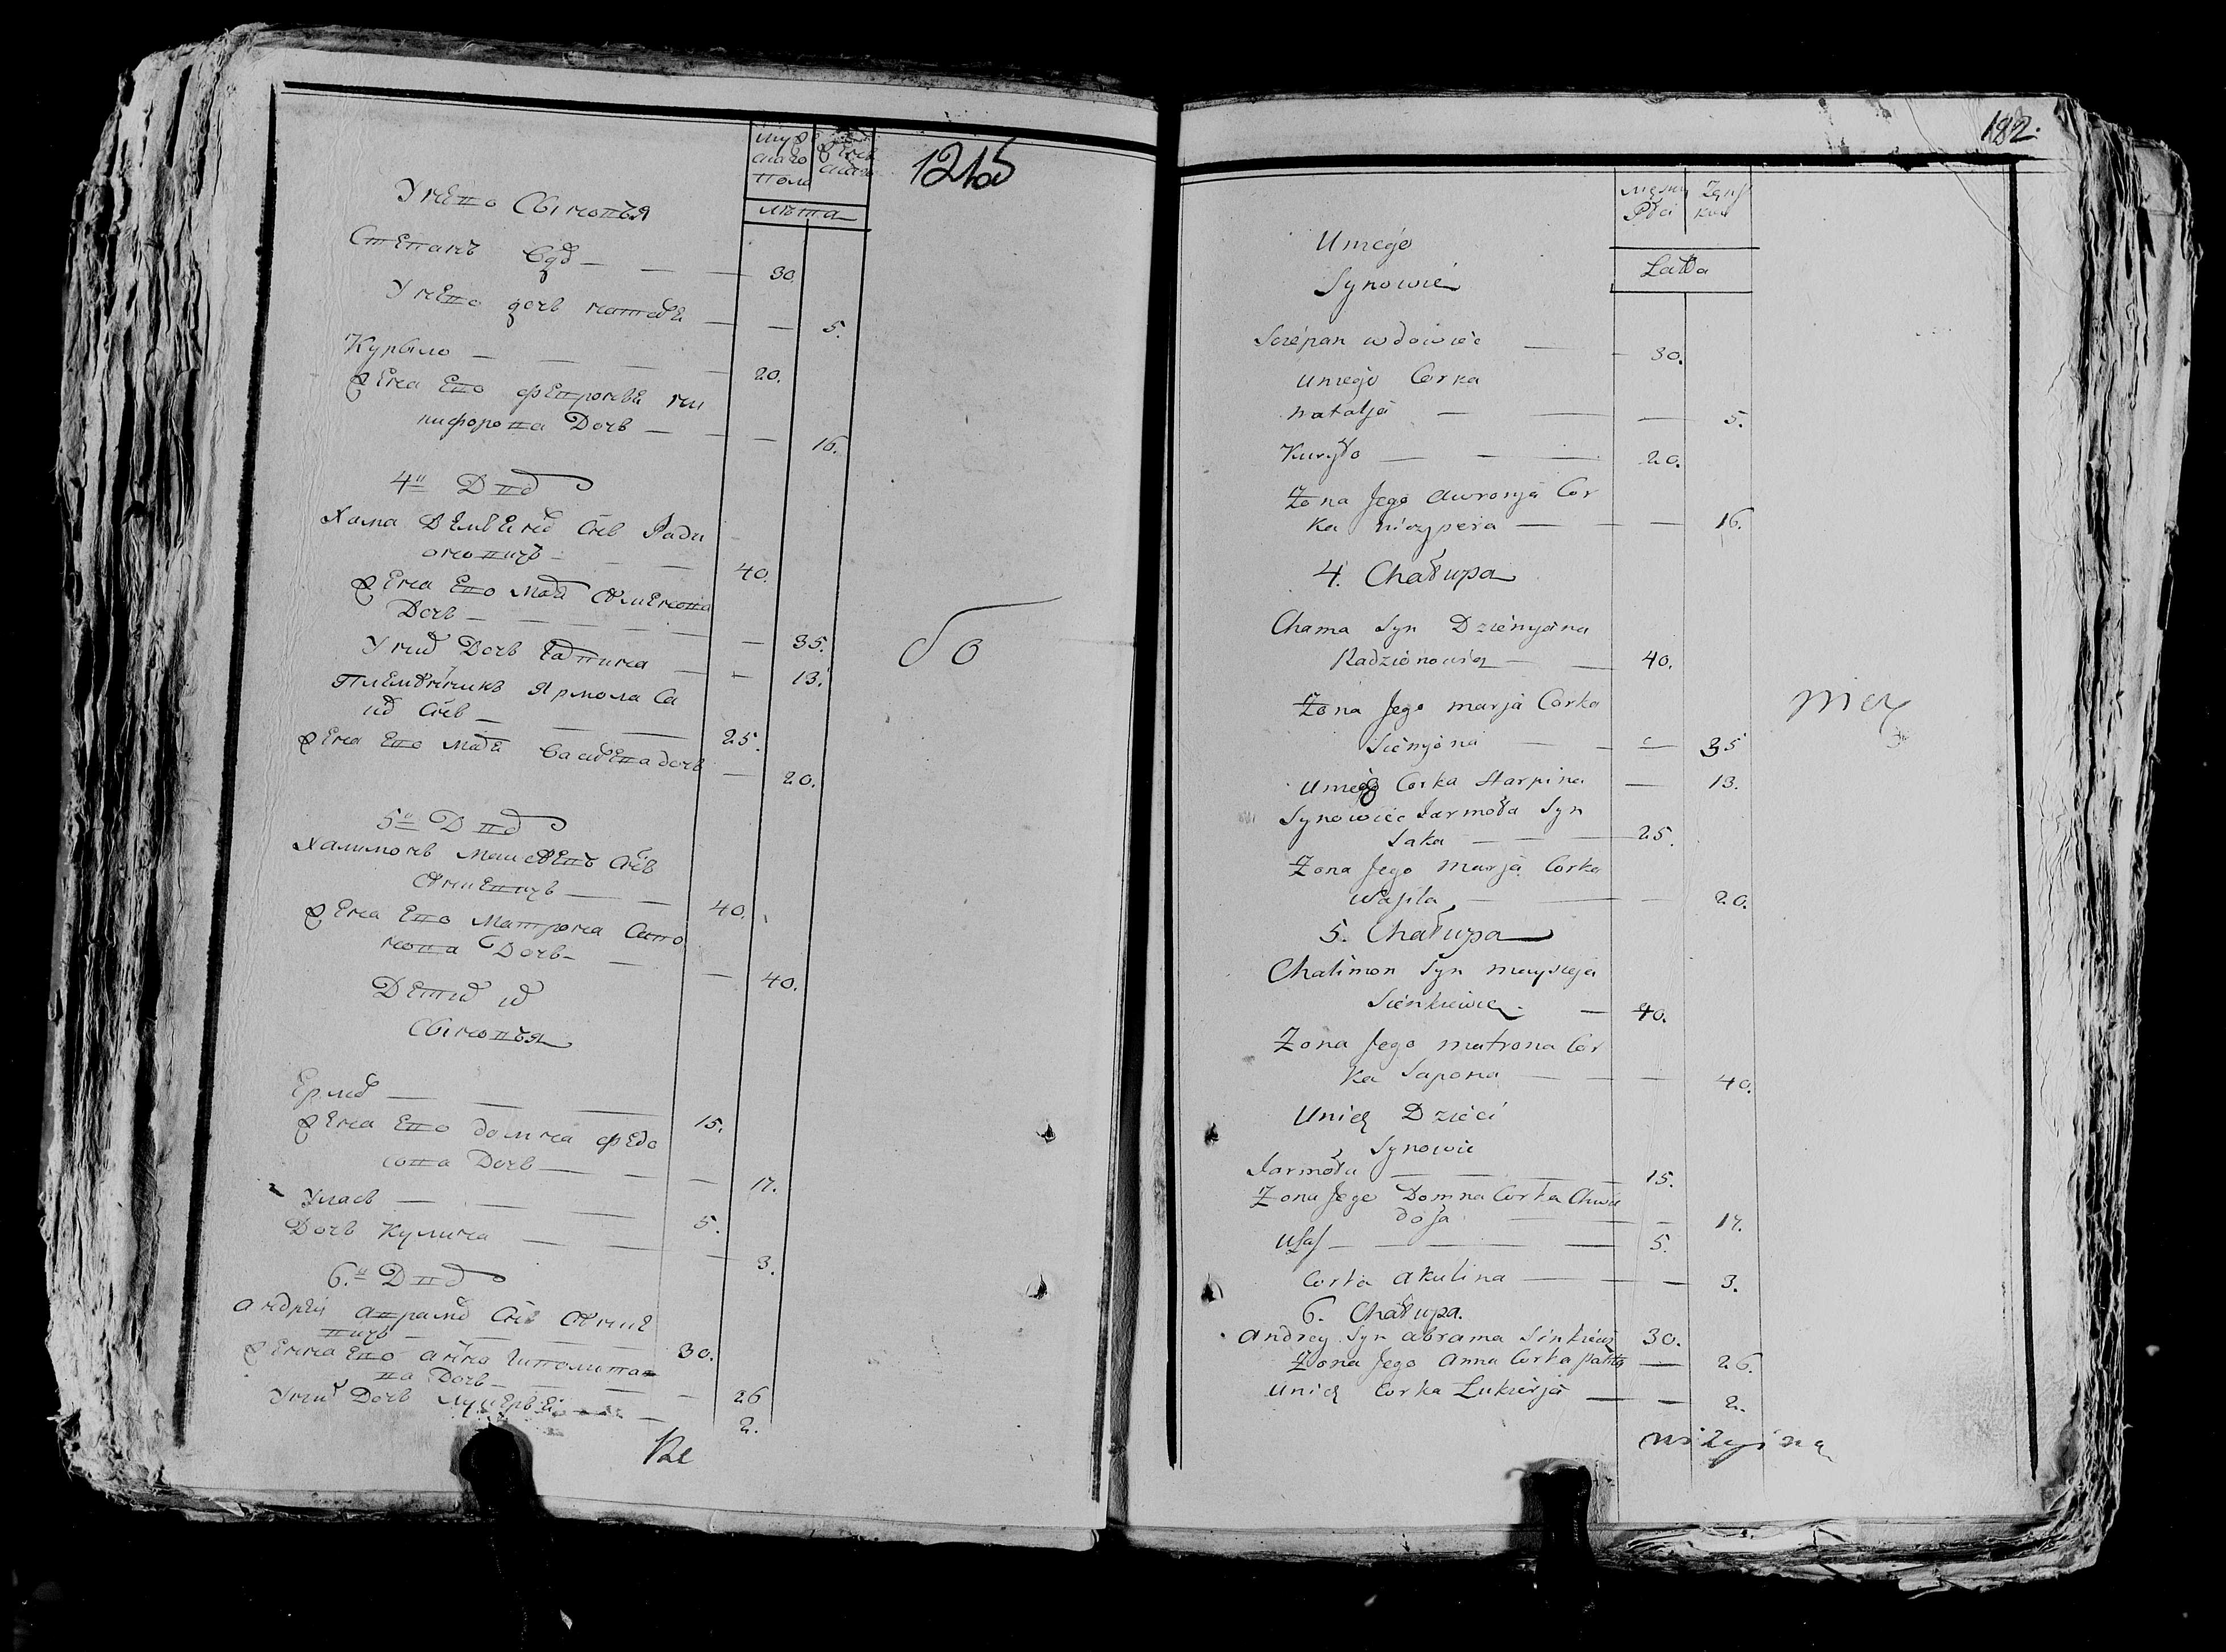 муж
скаго
Пола
женскаго
лѣта
1215
У него Сыновья
Степанъ вд — — — 30.
У него дочь наталья — — 5.
Курыло — — — 20.
жена его февронья ни
пифорова Дочь — — — 16.
4й Двор
Хама Демьянов Снъ Ради
оновичь — — — 40.
жена его Марья Семенова
Дочь — — — 35.
У них Дочь Гапина — — 13.
Племянникъ Ярмола Са
ков Снъ — — — 25.
жена его Марья Васильева дочь — 20.
5й Двор
Халимонъ Мосеевъ Снъ
Сенкевичь — — 40.
жена его Матрона Сапо
нова Дочь — — — 40.
Дети их
Сыновья
Ермол — — — 15.
жена его домна федо
сова Дочь — — — 17.
Уласъ — — — 5.
Дочь Кулина — — — 3.
6й Двор
андрей аврамов Снъ Сенке
вичь — — — 30.
женна его анна иполито
ва Дочь — — — 26
У них Дочь Лукерья — — 2.
182.
Męzkiey
Płci
Zęńskiey
Latta
Uniego
Synowie
Sciepan wdowiec — — 30.
uniego Corka
natalja — — — 5.
Kuryło — — 20.
Zona Jego awronja Cor
ka niczypera — — — 16.
4. Chałupa
Chama Syn Dziemjana
Radzionowicz — — 40.
Zona Jego marja Corka
Siemjona — — — 35
Uniego Corka Harpina — 13.
Synowiec Jarmoła Syn
Saka — — — 25.
Zona Jego Marja Corka
Wasila — — — 20.
5. Chałupa
Chalimon Syn maysieja
Sienkiewicz — 40.
Zona Jego matrona Cor
ka Sapona — — — 40.
Unich Dzieci
Synowie
Jarmoła — — — 15.
Zona Jego Domna Corka Chwie
dosa — — 17.
Ułas — — — 5.
Corka akulina — — — 3.
6. Chałupa.
Andrey Syn abrama Sinkiewicz 30.
Zona Jego Anna Corka Pałto — 26.
Unich Corka Lukierja — — 2.